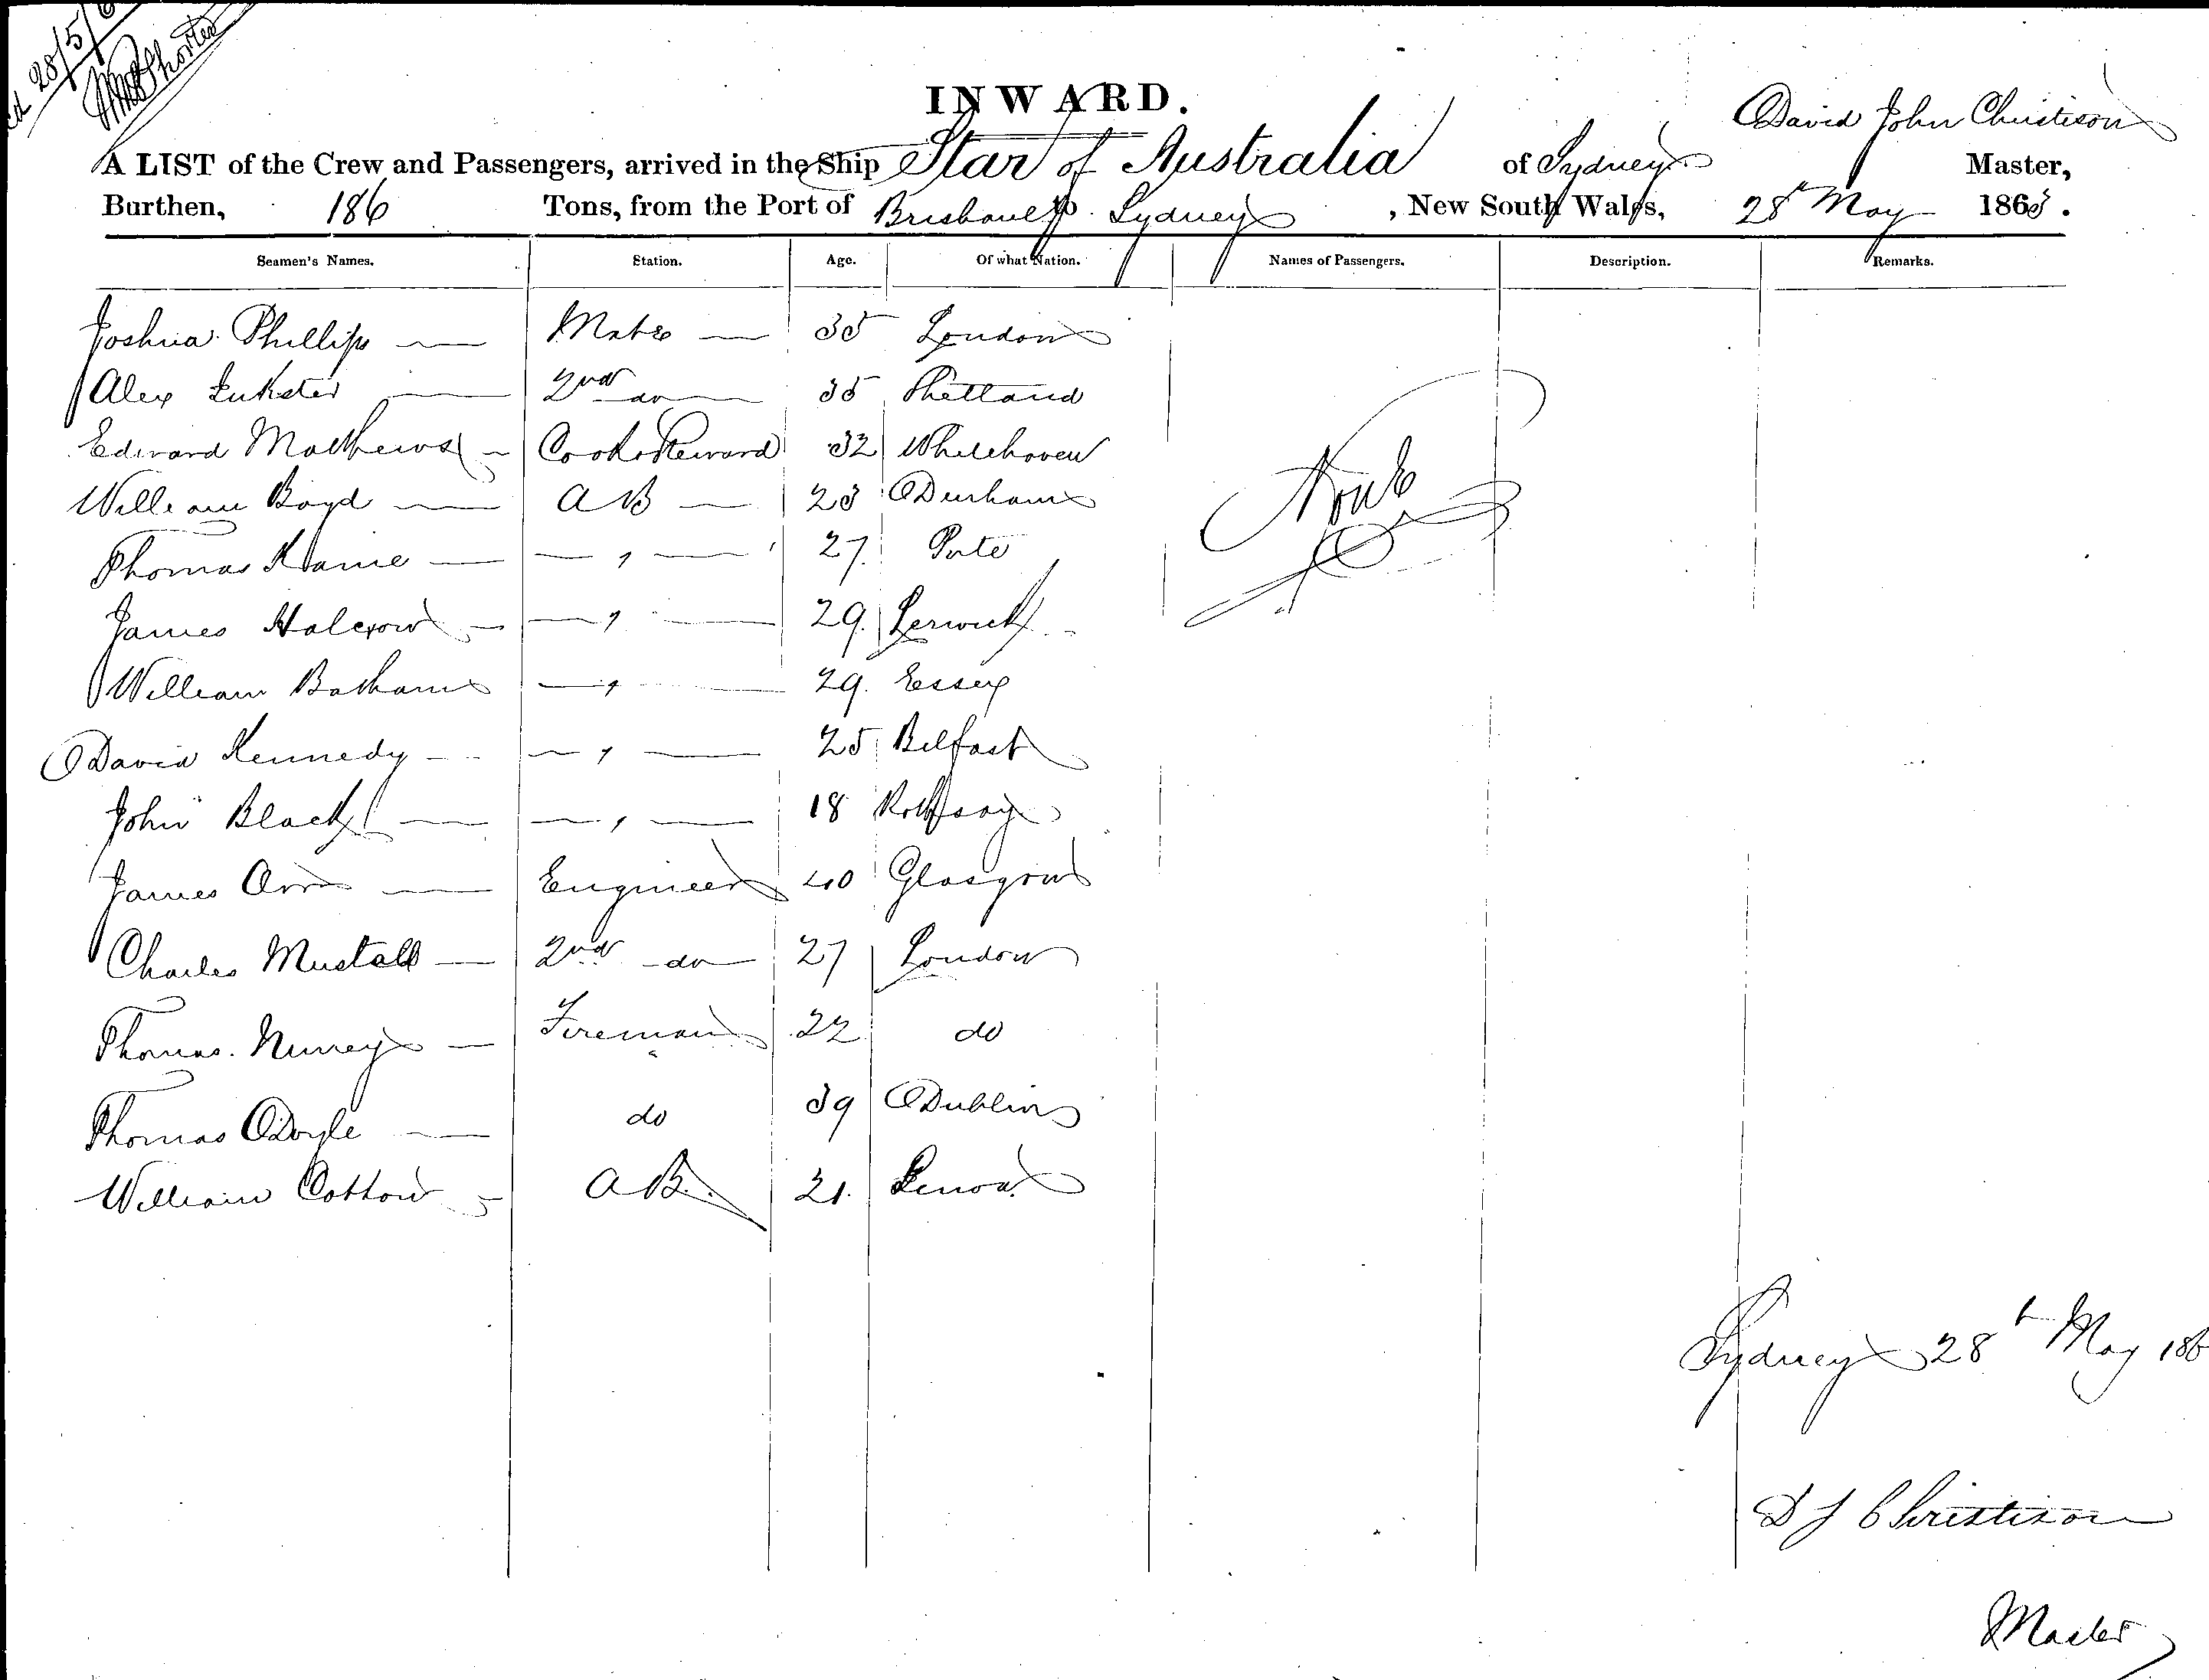 28/5/6
INWARD.
David John Christison
A LIST of the Crew and Passengers, arrived in the Ship Star of Australia of Sydney Master,
Burthen, 186 Tons, from the Port of Brisbane to Sydney, New South Wales, 28th May 1865.
Seamen's Names. Station. Age. Of what Nation. Names of Passengers. Description. Remarks.
Joshua Phillips Mate 35 London
Alex 2nd do 35 Shetland
Edward Mathews Cook & Steward 32 Whitehaven
William Boyd AB 23 Durham
Thomas 27.
James Halcrow 29. Lerwick
William 29. Essex
David Kennedy 25 Belfast
John Black 18 Rothsay
James Orr Engineer 40 Glasgow
Charles Mustall 2nd do 27 London
Thomas Fireman 22 do
Thomas Doyle do 39 Dublin
William Cottow AB. 21.
Sydney 28th May 186
D J Christison
Master